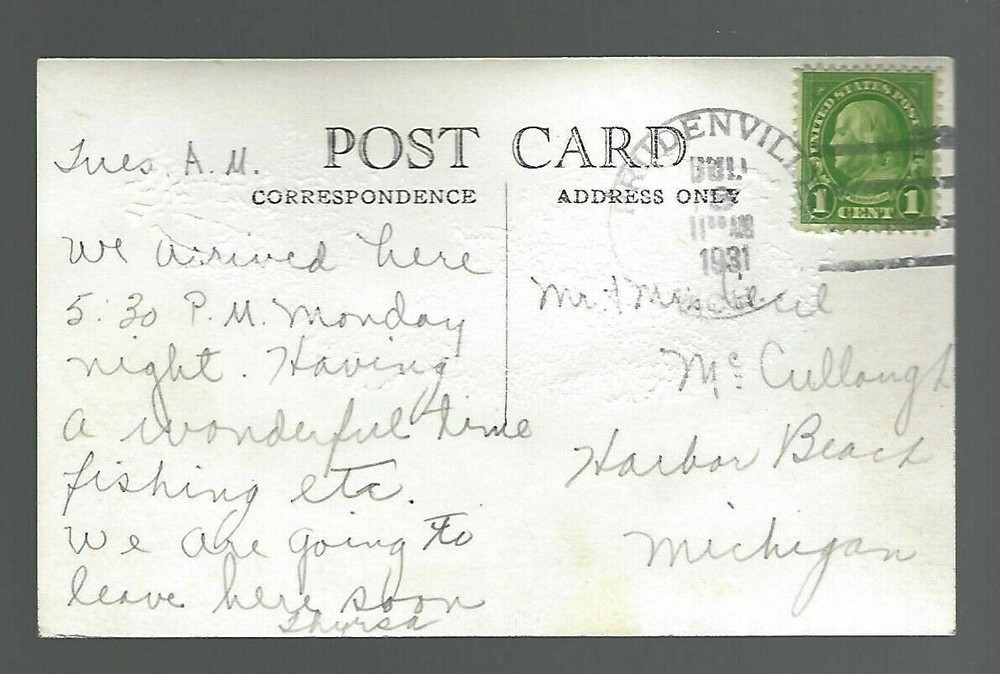 POST CARD
CORRESPONDENCE
ADDRESS ONLY
Tues. A.M.
We arrived here
5:30 P.M. Monday
night. Having
a wonderful time
fishing etc.
We are going to
leave here soon
Thyrsa
PRUDENVILLE
11 AM
1931
UNITED STATES POSTAGE
1 CENT 1
Mr. & Mrs. Cecil
McCullough
Harbor Beach
Michigan